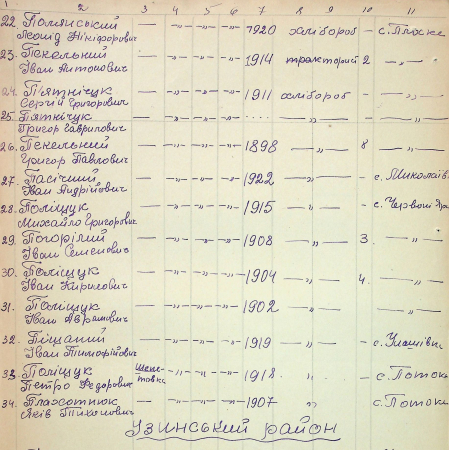 1 2 3 4 5 6 7 8 9 10 11
22. Полянський
Леонід Нікіфорович — „ — „ — „ — 1920 хлібороб — с. Пліске
23. Пекельний
Іван Антонович — „ — „ — „ — 1914 тракторист 2 — „ —
24. П'ятнічук
Сергій Григорович — „ — „ — „ — 1911 хлібороб — — „ —
25. П'ятнічук
Григор Гаврилович — „ — „ — „ — .... — „ — — — „ —
26. Пекельний
Григор Павлович — „ — „ — „ — 1898 — „ — 8 — „ —
27. Пасічний
Іван Андрійович — „ — „ — „ — 1922 — „ — — с. Миколаїв
28. Поліщук
Михайло Григорович — „ — „ — „ — 1915 — „ — — с. Червоні
29. Погорілий
Іван Семенович — „ — „ — „ — 1908 — „ — 3. — „ —
30. Поліщук
Іван Кирилович — „ — „ — „ — 1904 — „ — 4. — „ —
31. Поліщук
Іван Аврамович — „ — „ — „ — 1902 — „ — — „ —
32. Піщаний
Іван Тимофійович — „ — „ — „ — 1919 — „ — — с.
33. Поліщук Шепе-
Петро Федорович товка — „ — „ — „ — 1918 „ — с. Потоки
34. Плахотнюк
Яків Тихонович — „ — „ — „ — 1907 „ с. Потоки
Узинський район